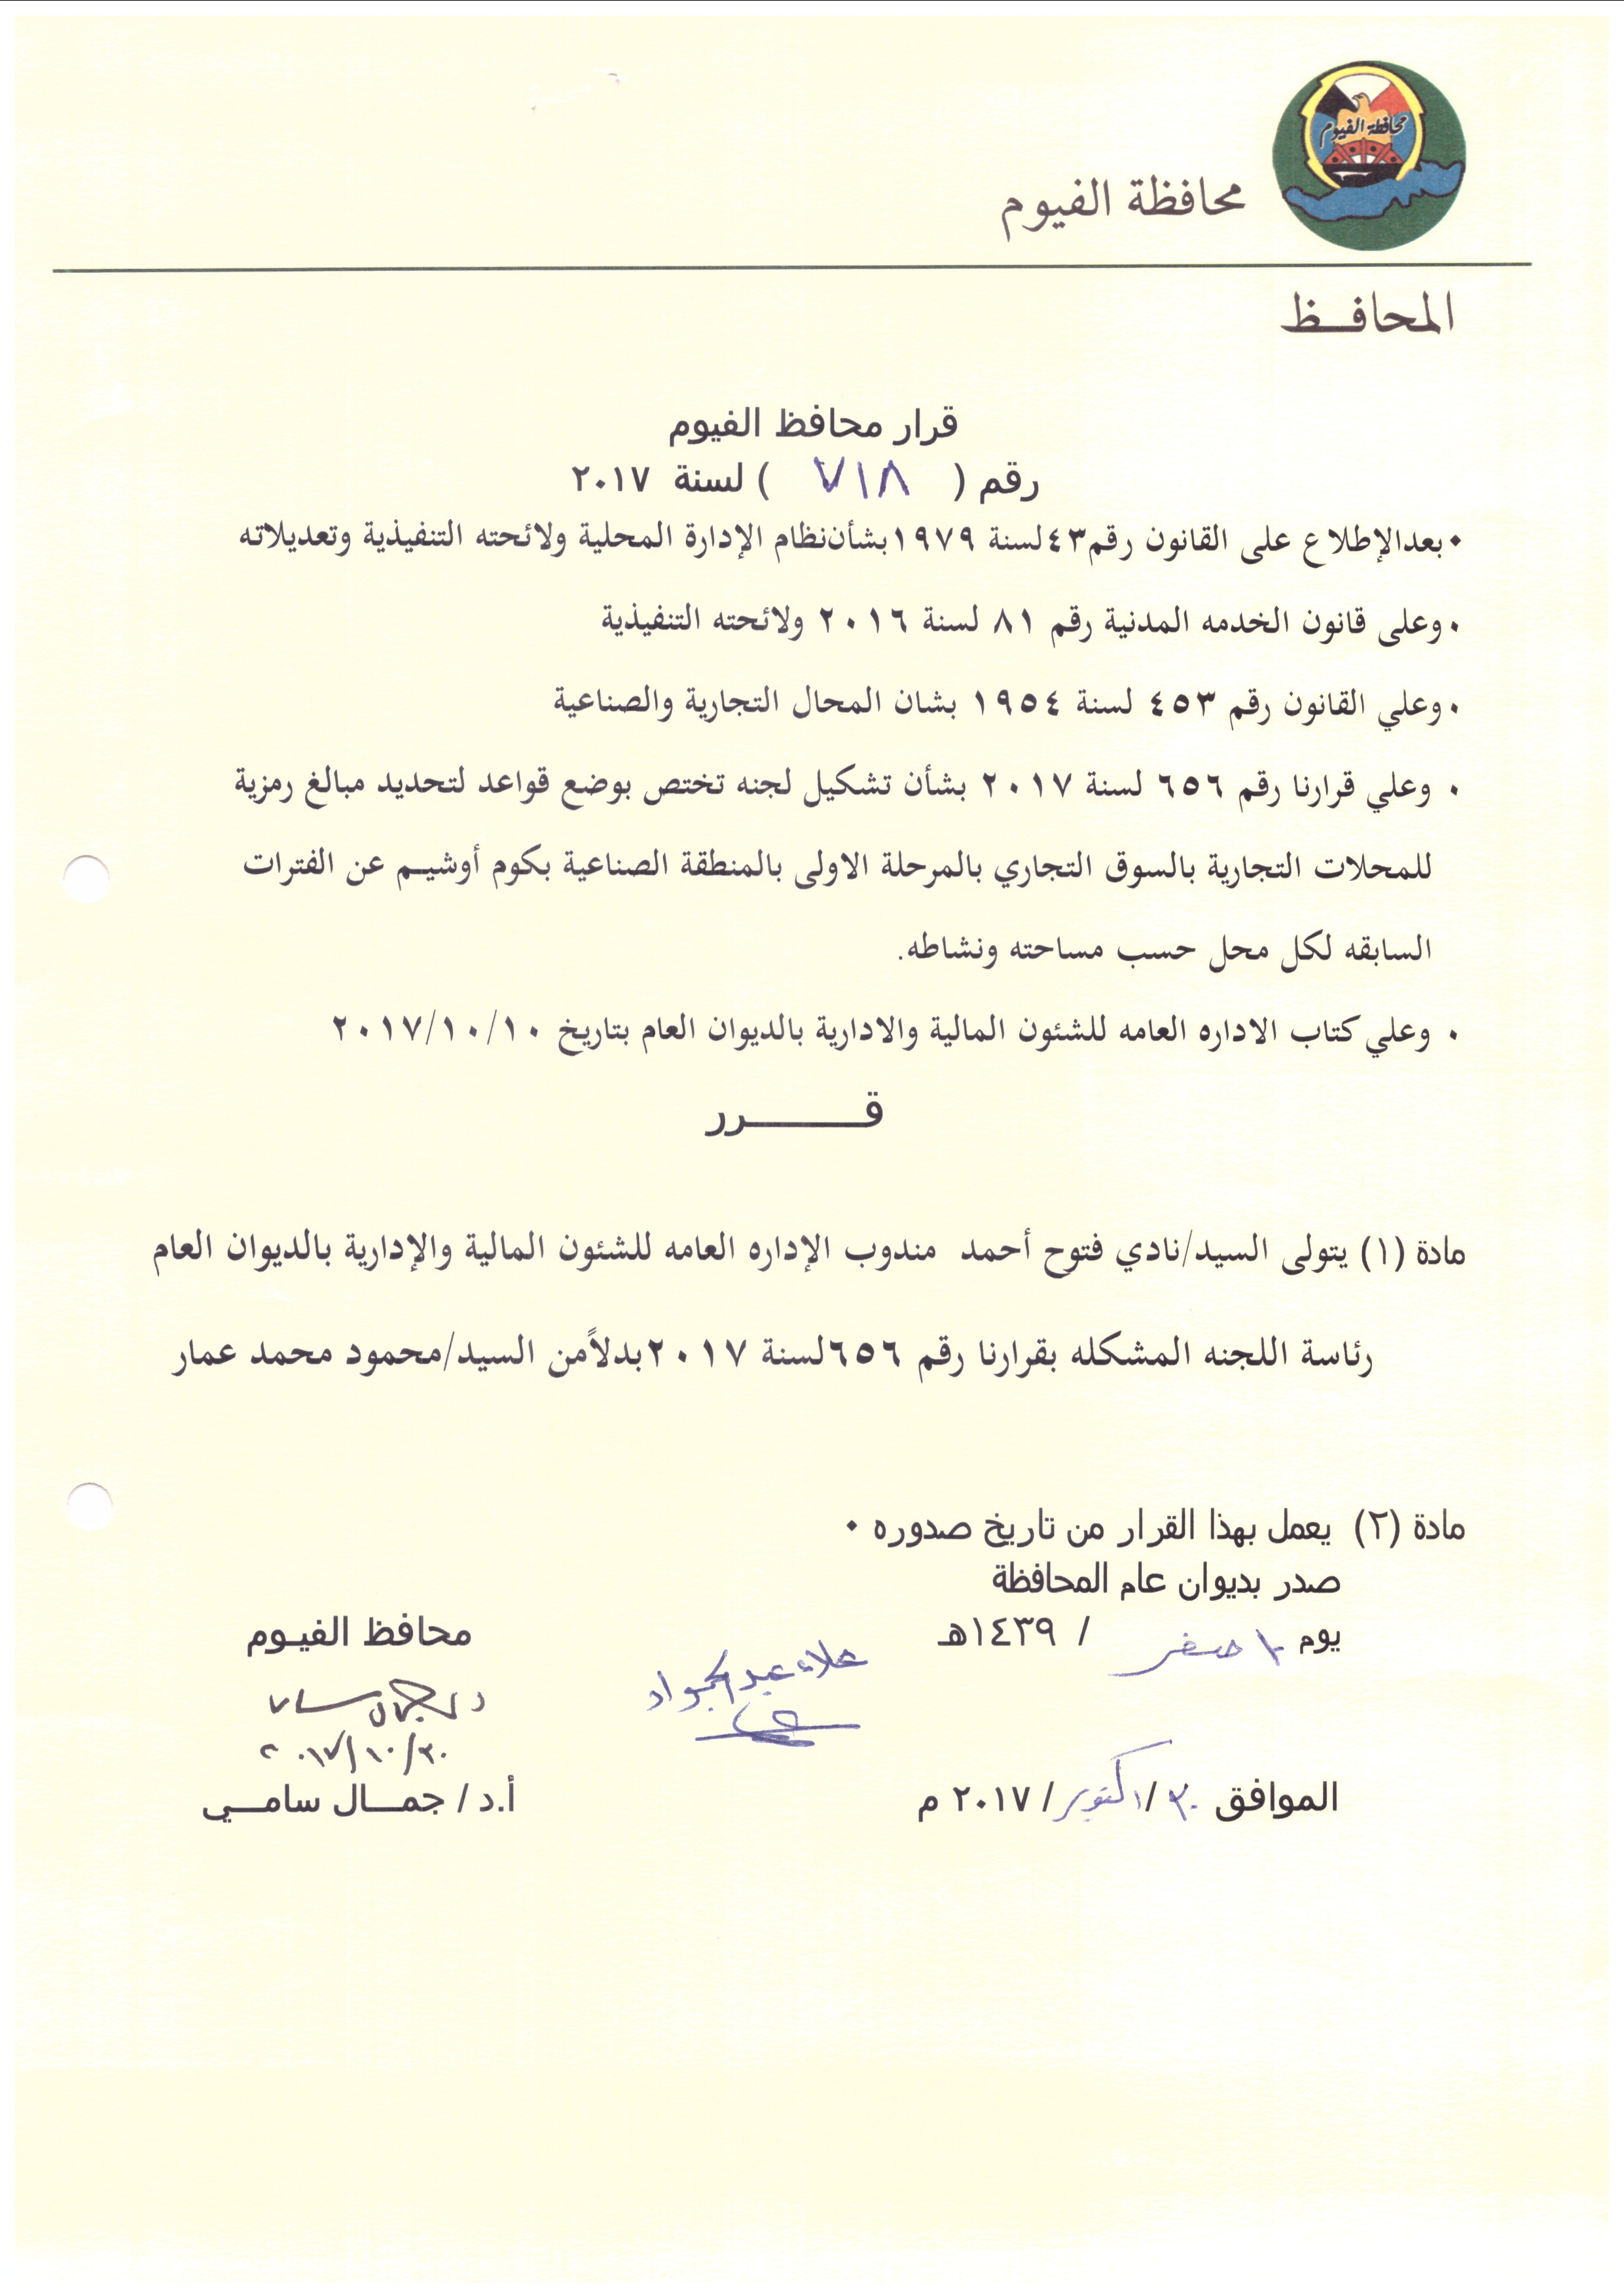 محافظة الفيوم
محافظة الفيوم
المحافـظ
قرار محافظ الفيوم
رقم ( ٧١٨ ) لسنة ٢٠١٧
• بعدالإطلاع على القانون رقم٤٣لسنة ١٩٧٩بشأن‌نظام الإدارة المحلية ولائحته التنفيذية وتعديلاته
• وعلى قانون الخدمه المدنية رقم ٨١ لسنة ٢٠١٦ ولائحته التنفيذية
• وعلي القانون رقم ٤٥٣ لسنة ١٩٥٤ بشان المحال التجارية والصناعية
• وعلي قرارنا رقم ٦٥٦ لسنة ٢٠١٧ بشأن تشكيل لجنه تختص بوضع قواعد لتحديد مبالغ رمزية
للمحلات التجارية بالسوق التجاري بالمرحلة الاولى بالمنطقة الصناعية بكوم أوشيـم عن الفترات
السابقه لكل محل حسب مساحته ونشاطه.
• وعلي كتاب الاداره العامه للشئون المالية والادارية بالديوان العام بتاريخ ٢٠١٧/١٠/١٠
قـــــــرر
مادة (١) يتولى السيد/نادي فتوح أحمد مندوب الإداره العامه للشئون المالية والإدارية بالديوان العام
رئاسة اللجنه المشكله بقرارنا رقم ٦٥٦لسنة ٢٠١٧بدلاًمن السيد/محمود محمد عمار
مادة (٢) يعمل بهذا القرار من تاريخ صدوره •
صدر بديوان عام المحافظة
يوم ١٠ صفر / ١٤٣٩هـ
محافظ الفيـوم
علاء عبد الجواد
٢٠١٧/١٠/٣٠
الموافق ٣٠/اكتوبر/ ٢٠١٧ م
أ.د / جمـــال سامـــي